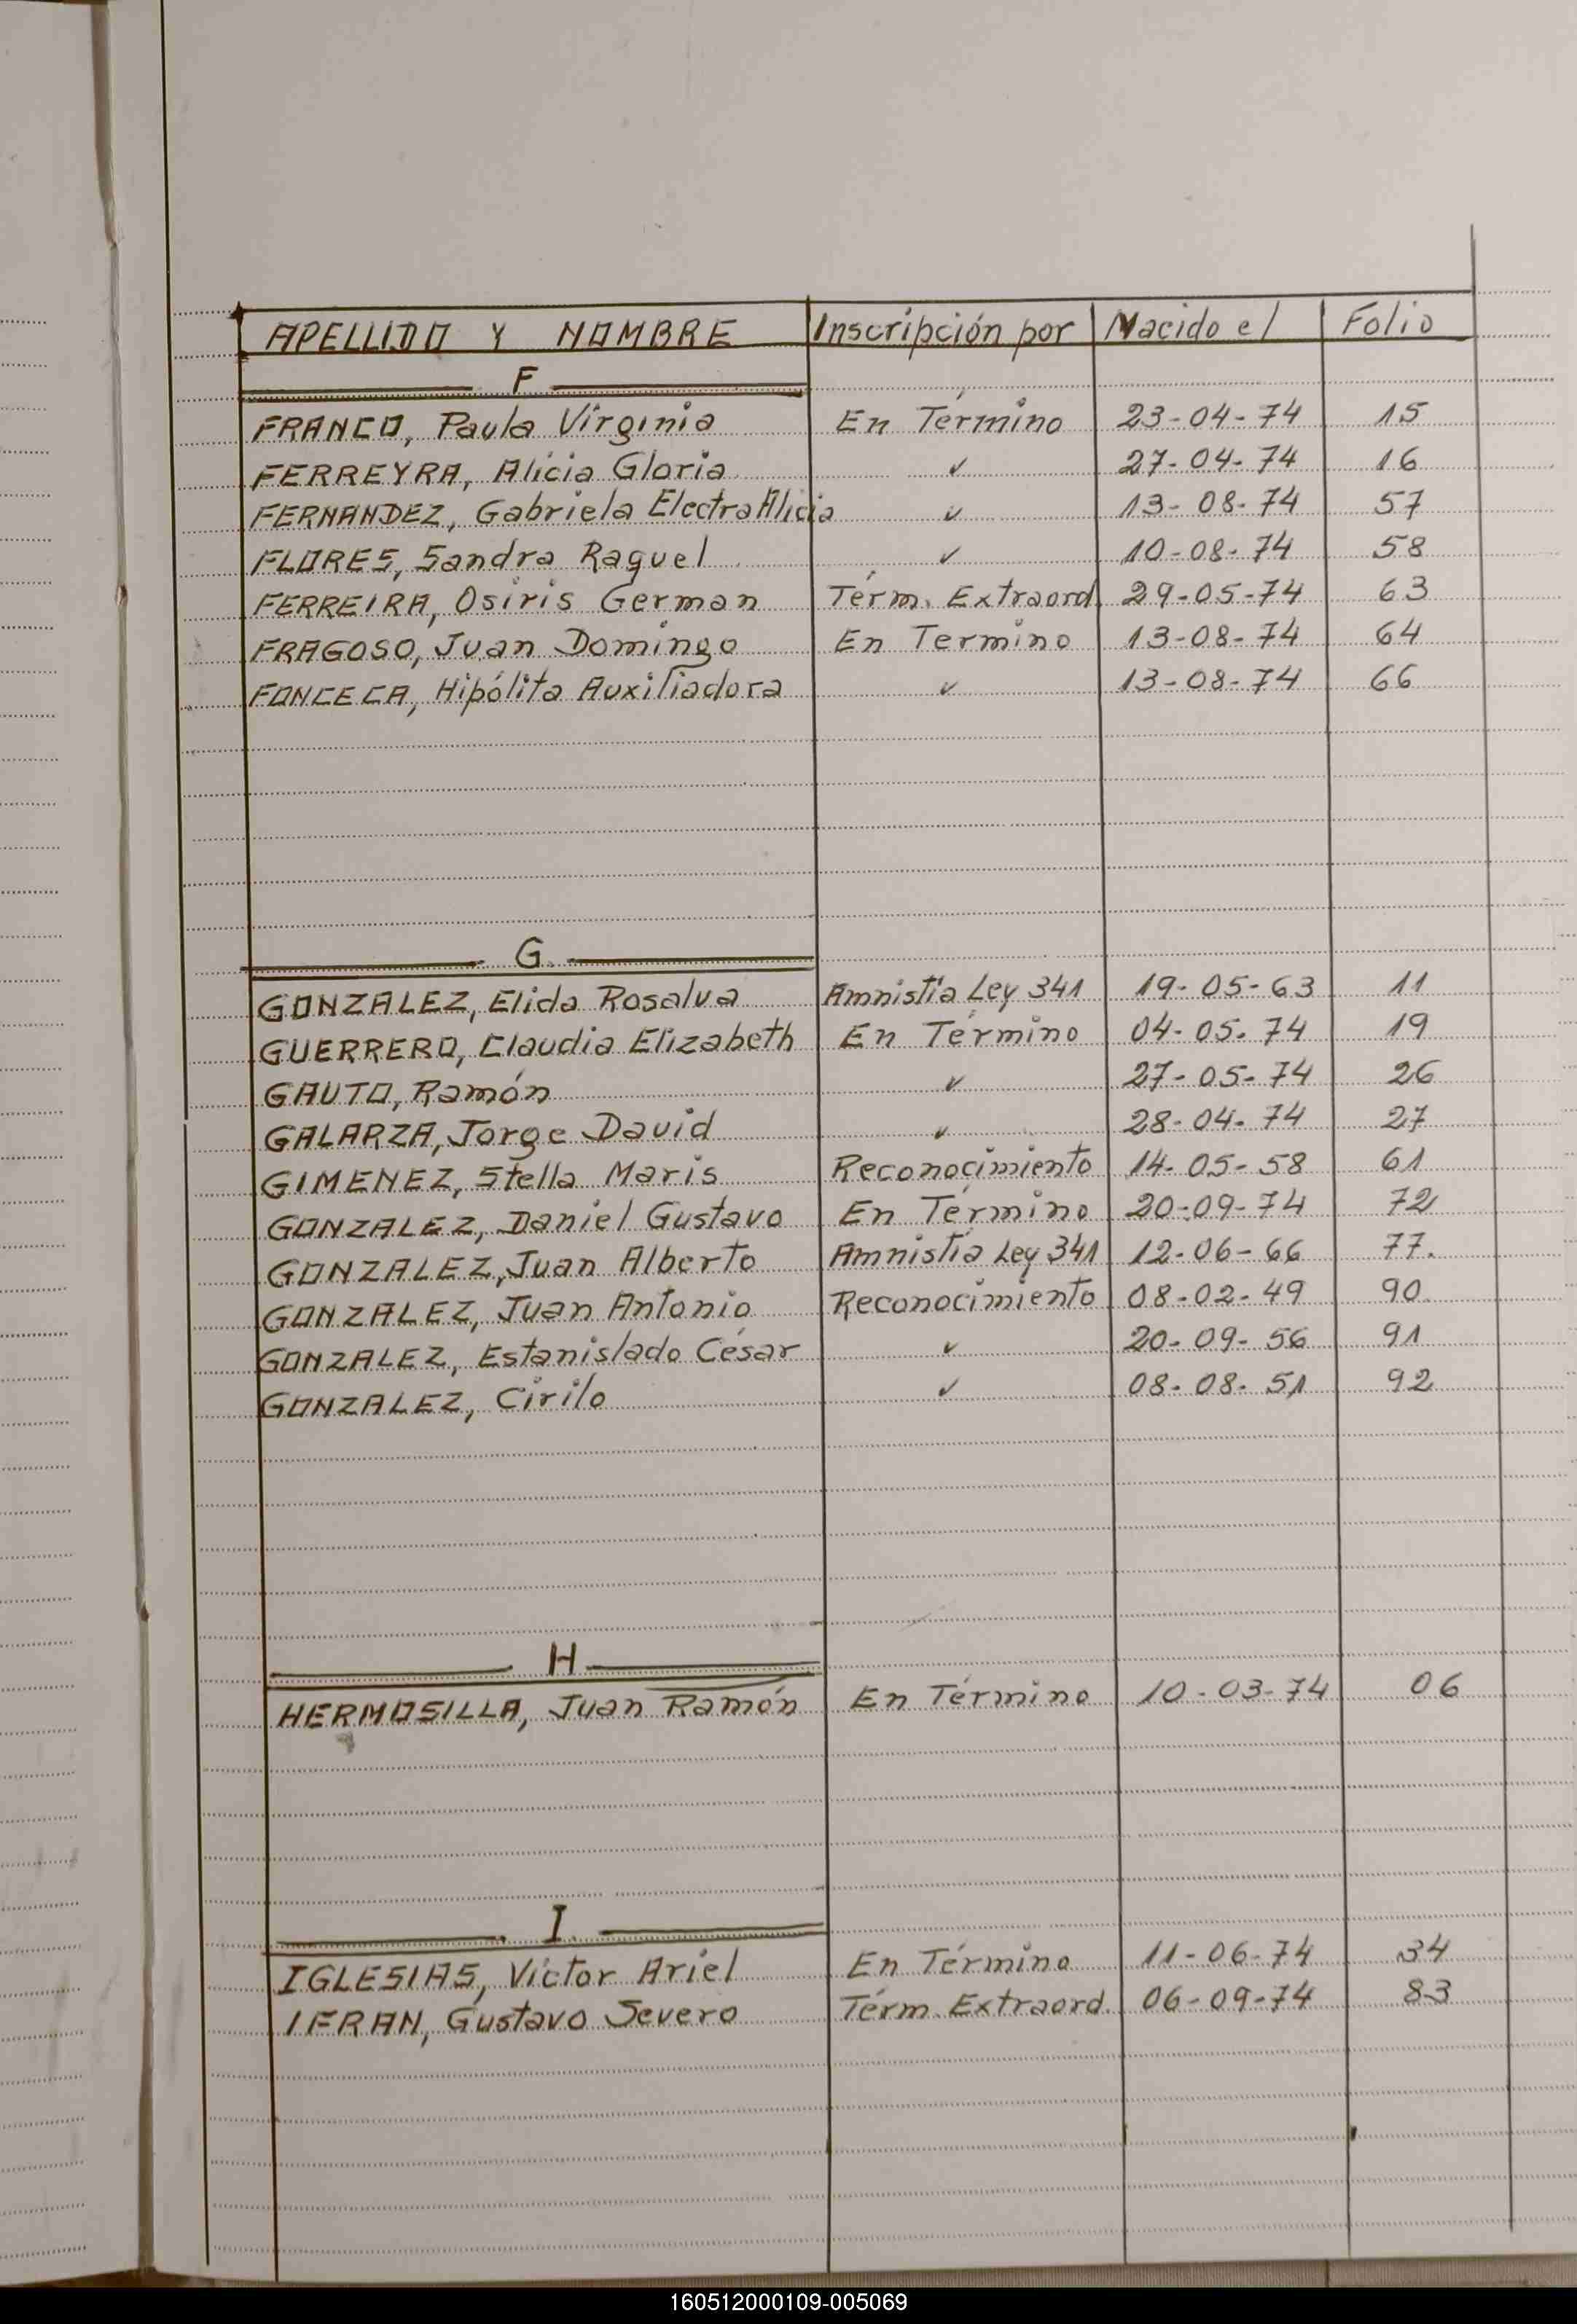 APELLIDO Y NOMBRE Inscripción por Nacido el Folio
F
FRANCO, Paula Virginia En Término 23-04-74 15
FERREYRA, Alicia Gloria ✓ 27-04-74 16
FERNANDEZ, Gabriela Electra Alicia ✓ 13-08-74 57
FLORES, Sandra Raquel ✓ 10-08-74 58
FERREIRA, Osiris German Térm. Extraord. 29-05-74 63
FRAGOSO, Juan Domingo En Termino 13-08-74 64
FONCECA, Hipólita Auxiliadora ✓ 13-08-74 66
G.
GONZALEZ, Elida Rosalva Amnistía Ley 341 19-05-63 11
GUERRERO, Claudia Elizabeth En Término 04-05-74 19
GAUTO, Ramón ✓ 27-05-74 26
GALARZA, Jorge David ✓ 28-04-74 27
GIMENEZ, Stella Maris Reconocimiento 14-05-58 61
GONZALEZ, Daniel Gustavo En Término 20-09-74 72
GONZALEZ, Juan Alberto Amnistía Ley 341 12-06-66 77.
GONZALEZ, Juan Antonio Reconocimiento 08-02-49 90
GONZALEZ, Estanislado César ✓ 20-09-56 91
GONZALEZ, Cirilo ✓ 08-08-51 92
H
HERMOSILLA, Juan Ramón En Término 10-03-74 06
I.
IGLESIAS, Víctor Ariel En Término 11-06-74 34
IFRAN, Gustavo Severo Térm. Extraord. 06-09-74 83
160512000109-005069